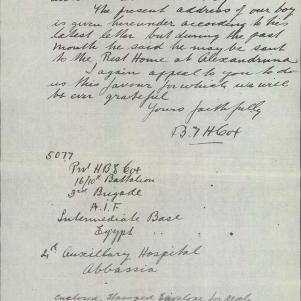 The present address of our boy
is given hereunder according to his
latest letter but during the past
month he said he may be sent
to the Rest Home at Alexandria
I again appeal to you to do
us this favour for which we will
be ever grateful
Yours faithfully
B. T H Cox
5077
Pvt H B T Cox
16/10th Battalion
3rd Brigade
A.I.F
Intermediate Base
Egypt
4th Auxillary Hospital
Abbassia
enclosed Stamped Envelope for Reply